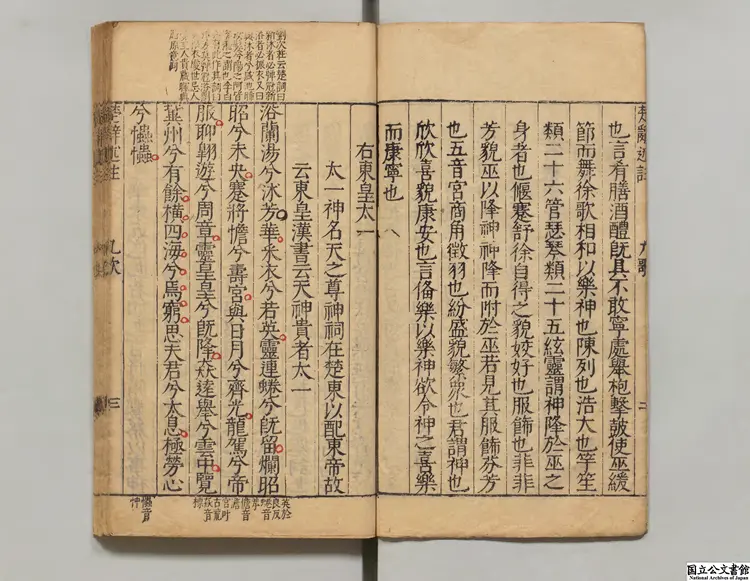 楚辭述註 九歌 二
也言有膳酒醴旣具不敢寧處舉枹擊鼓使巫緩
節而舞徐歌相和以樂神也陳列也浩大也竽笙
類三十六管瑟琴類二十五絃靈謂神降於巫之
身者也偃蹇舒徐自得之貌姣好也服飾也菲菲
芳貌巫以降神神降而附於巫若見其服飾芬芳
也五音宮商角徵羽也紛盛貌繁衆也君謂神也
欣欣喜貌康安也言備樂以樂神欲令神之喜樂
而康寧也
右東皇太一
太一神名天之尊神祠在楚東以配東帝故
云東皇漢書云天神貴者太一
浴蘭湯兮沐芳華采衣兮若英靈連蜷兮旣留爛昭
昭兮未央蹇將憺兮壽宮與日月兮齊光龍駕兮帝
服聊翱遊兮周章靈皇皇兮旣降猋遠舉兮雲中覽
兾州兮有餘橫四海兮焉窮思夫君兮太息極勞心
兮㤝㤝
楚辭述註 九歌 三
英於
良反
蜷音
拳
憺音
宮叶
古荒
猋音
標
㤝音
忡
国立公文書館
National Archives of Japan